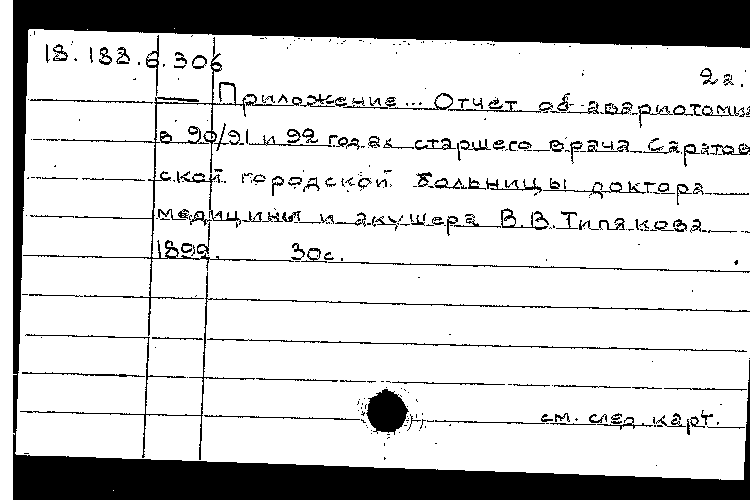 18.188.6.306
2а.
— Приложение... Отчет об авариотомиа
в 90/91 и 92 годах старшего врача Саратов
ской городской больницы доктора
медицины и акушера В.В.Типякова
1899. 30с.
см. след. карт.